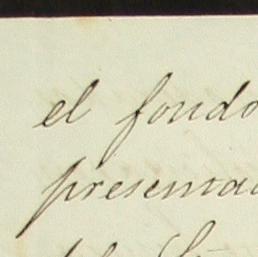 el fondo
presentad